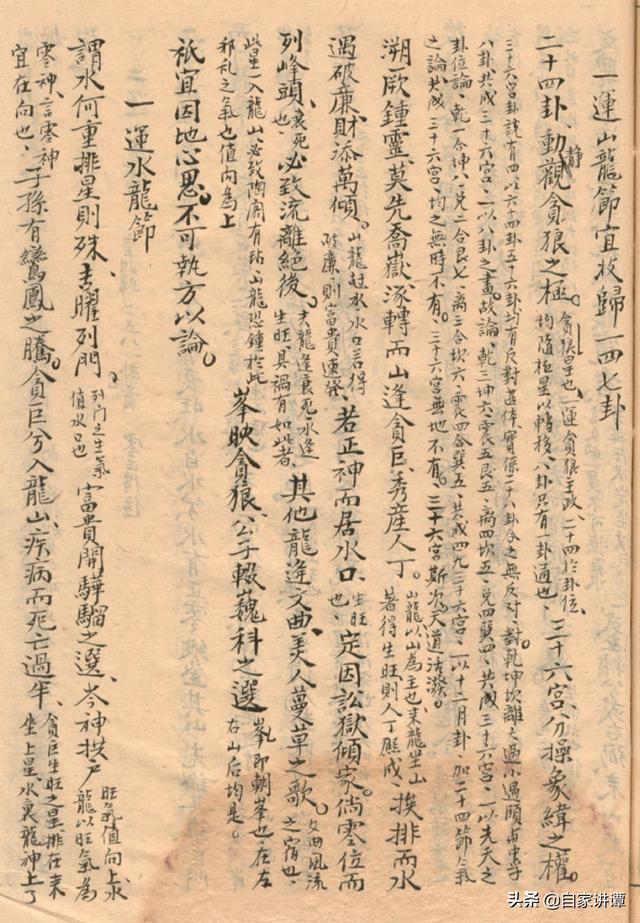 一運山龍節宜收歸一四七卦
二十四卦、動靜觀貪狼之極。貪狼星也、一運貪狼主政、二十四於卦位、均隨極星以轉移、八卦只有一卦通也、三十六宮、分操象緯之權。
三十六宮卦說有四以六十四卦五十六卦均有反對体實係二十八卦合之無反對、對乾坤坎離大過小過頤中孚
八卦共成三十六宮、一以八卦之畫、故論、乾三坤六、震五艮五、離四坎五、兌四巽四、共成三十六宮、一以先天之
卦位論、乾一合坤八、兌二合艮七、離三合坎六、震四合巽五、共成四九三十六宮、一以十二月卦、加二十四節氣
之論共成三十六宮、均之無時不有。三十六宮無地不有。三十六宮斯天道活潑。
溯厥鍾靈、莫先喬嶽、涿轉而山逢貪巨、秀產人丁。山龍以山為主也、来龍坐山著得生旺則人丁成、挨排而水
遇破廉、財添萬傾。山龍討水、水口若得破廉、則富貴速發若正神而居水口、生旺也、定因訟獄傾家。倘零位而
列峰頭、衰死也必致流離絕後。夫龍逢衰死、水逢生旺、具禍有如此者、其他龍逢文曲、美人蔓草之歌。文曲風流之宿也、
此星一入龍山、必致陶有玷、山龍恐鍾於此邪乱之氣也值向為上峯映貪狼、公子輟巍科之選峯即朝峯也、在左右山后均是、
祇宜因地心思、不可執方以論。
一運水龍節
謂水何重排星則殊、吉曜列門。列門之生氣值水口也富貴開驊騮之選、岑神拱戶旺氣值向上水龍以旺氣為
零神、言零神宜在向也、子孫有鸞鳳之騰。貪巨兮入龍山、疾病而死亡過半、貪巨生旺之星、排在来坐上星水裏龍神上了
头条 @自家讲谭